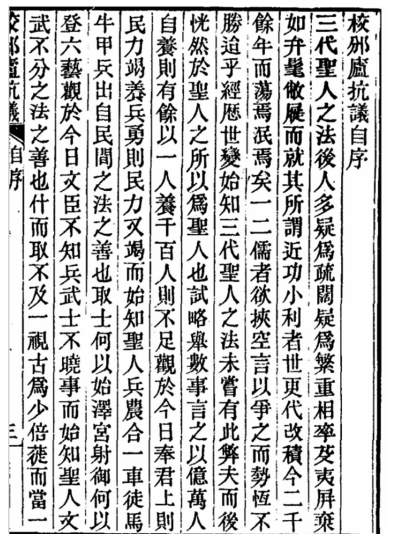 校邠廬抗議自序
三代聖人之法後人多疑爲疏闊疑爲繁重相率芟夷屏棄
如弁髦敝屣而就其所謂近功小利者世更代改積今二千
餘年而蕩焉泯焉矣一二儒者欲挾空言以爭之而勢恆不
勝迨乎經歷世變始知三代聖人之法未嘗有此弊夫而後
恍然於聖人之所以爲聖人也試略舉數事言之以億萬人
自養則有餘以一人養千百人則不足觀於今日奉君上則
民力竭養兵勇則民力又竭而始知聖人兵農合一車徒馬
牛甲兵出自民間之法之善也取士何以始澤宮射御何以
登六藝觀於今日文臣不知兵武士不曉事而始知聖人文
武不分之法之善也什而取不及一視古爲少倍蓰而當一
校邠廬抗議
自序
三